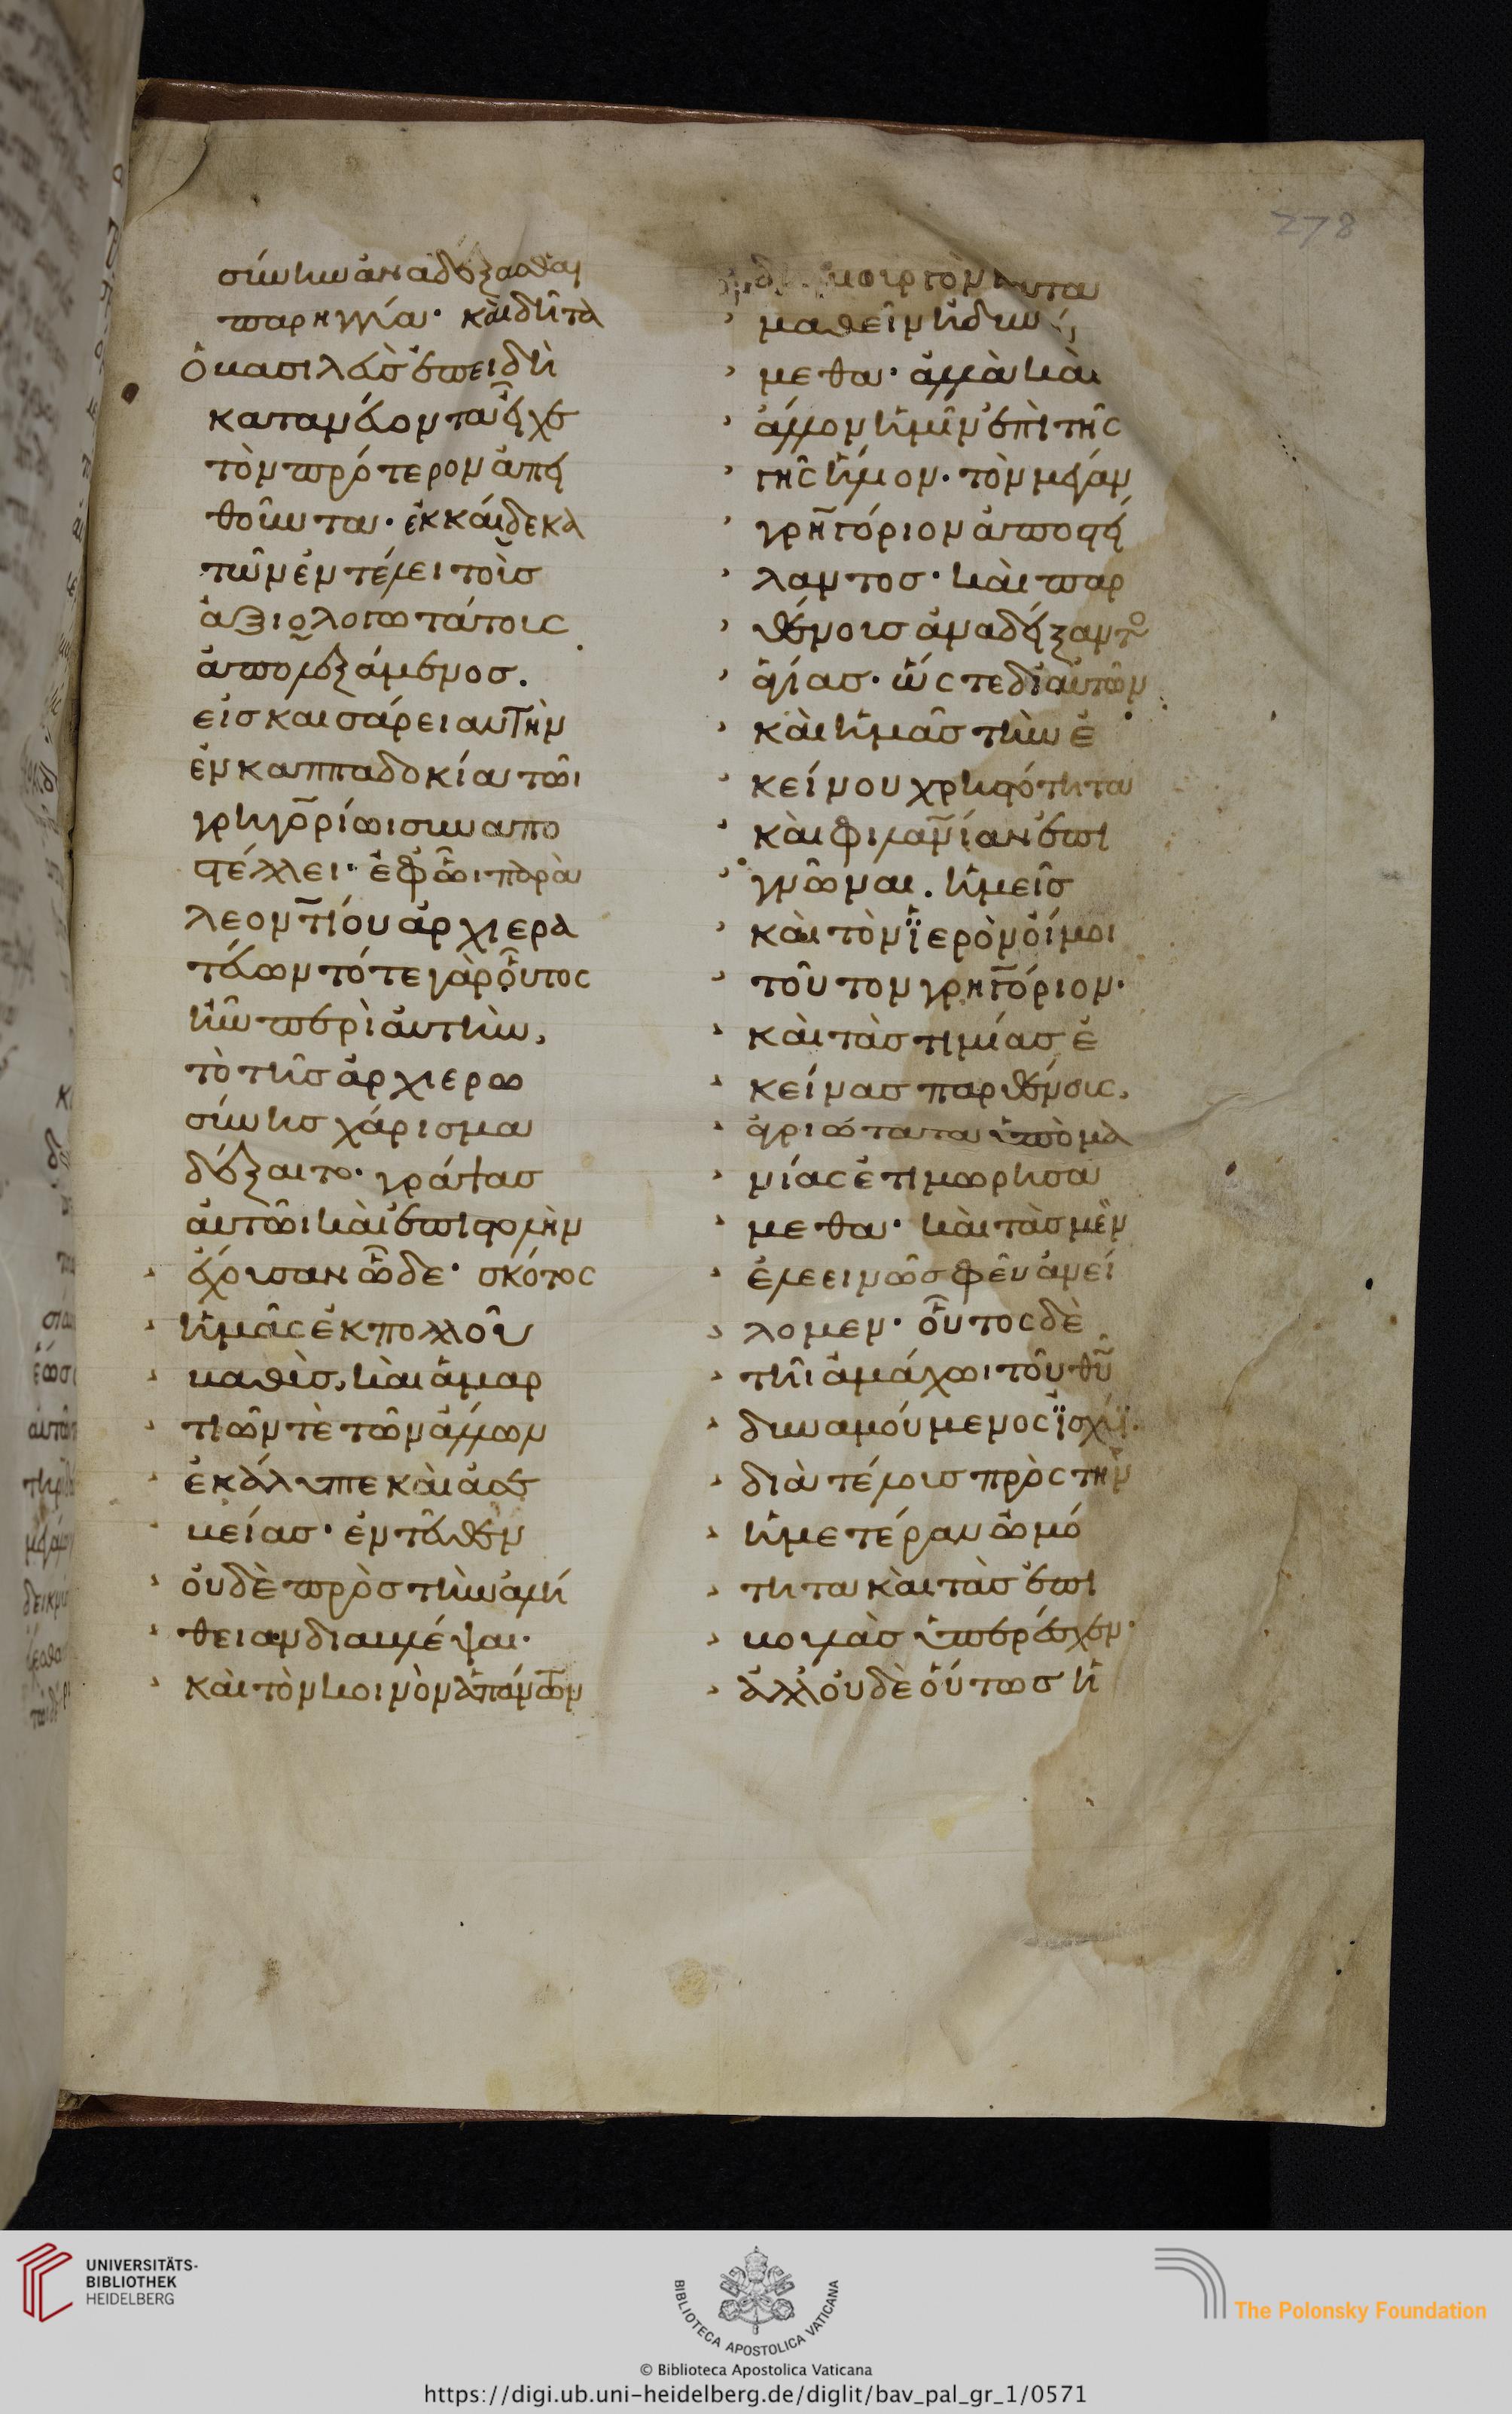 σύνην ἀναδέξασθαι
παρηγγία· καὶ δῆτα
ὁ βασιλεὺς ἐπειδὴ
κατανεύοντα εἶχε
τὸν πρότερον ἀπει
θοῦντα· ἑκκαίδεκα
τῶν ἐν τέλει τοῖς
ἀξιολογωτάτοις
ἀπολεξάμενος.
εἰς καισάρειαν τὴν
ἐν καππαδοκία τῶι
γρηγορίωι συναπο
στέλλει· ἐφ' ὧι παρὰ
λεοντίου ἀρχιερα
τεύων τότε γὰρ οὗτος
ἦν περὶ αὐτὴν,
τὸ τῆς ἀρχιερω
σύνης χάρισμα
δέξαιτο· γράψας
αὐτῶι καὶ ἐπιστολὴν
ἔχουσαν ὧδε· σκότος
ἡμᾶς ἐκ πολλοῦ
βαθὺς, καὶ ἁμαρ
τιῶν τὲ τῶν ἄλλων
ἐκάλυπτε καὶ ἀσε
βείας· ἐντεῦθεν
οὐδὲ πρὸς τὴν ἀλή
θειαν διαβλέψαι·
καὶ τὸν κοινὸν ἁπάντων
278
δημιουργὸν
μαθεῖν ἠδυνά
μεθα· ἀλλὰ καὶ
ἄλλον ἡμῖν ἐπὶ τῆς
γῆς ἥλιον· τὸν μέγαν
γρηγόριον ἀποστεί
λαντος· καὶ παρ
θένοις ἀναδείξαντο
ἁγίας· ὥστε δι' αὐτῶν
καὶ ἡμᾶς τὴν ἐ
κείνου χρηστότητα
καὶ φιλανίαν ἐπι
γνῶναι. ἡμεῖς
καὶ τὸν ἱερὸν οἴμοι
τοῦτον γρηγόριον·
καὶ τὰς τιμίας ἐ
κείνας παρθένοις,
ἀγριώτατα ὑπὸ μα
νίας ἐτιμωρησά
μεθα· καὶ τὰς μὲν
ἐλεεινῶς φεῦ ἀνεί
λομεν· οὗτος δὲ
τῆι ἀμάχωι τοῦ θυ
δυναμούμενος ἰσχύϊ·
διὰ τέλους πρὸς τὴν
ἡμετέραν ὠμό
τητα καὶ τὰς ἐπι
βουλὰς ὑπερέσχεν·
ἀλλ' οὐδὲ οὕτως ἡ
UNIVERSITÄTS-
BIBLIOTHEK
HEIDELBERG
BIBLIOTECA APOSTOLICA VATICANA
The Polonsky Foundation
© Biblioteca Apostolica Vaticana
https://digi.ub.uni-heidelberg.de/diglit/bav_pal_gr_1/0571